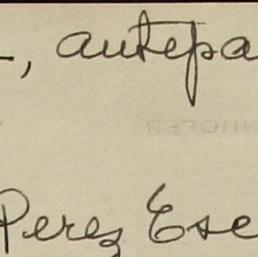 , antepa
Perez Ese